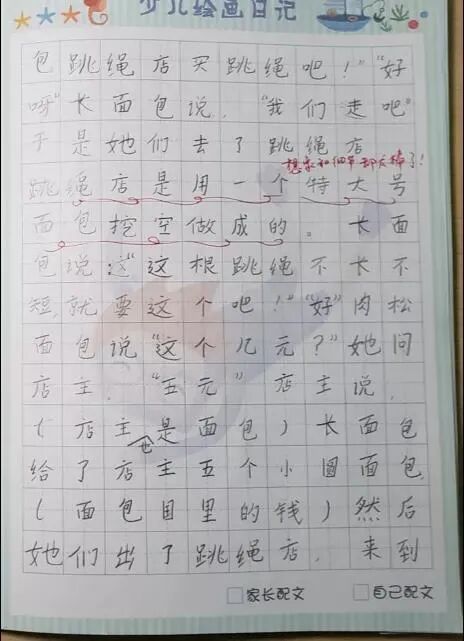 少儿绘画日记
包跳绳店买跳绳吧！”“好
呀”长面包说，“我们走吧”
于是她们去了跳绳店
想象和细节都太棒了！
跳绳店是用一个特大号
面包挖空做成的。长面
包说：“这根跳绳不长不
短就要这个吧！”“好”肉松
面包说“这个几元？”她问
店主，“五元”店主说，
（店主也是面包）长面包
给了店主五个小圆面包，
（面包国里的钱）然后
她们出了跳绳店，来到
家长配文 自己配文